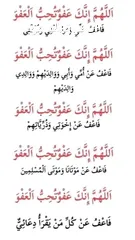 اَللَّهُمَّ إِنَّكَ عَفُوٌّ تُحِبُّ الْعَفْوَ
فَاعْفُ
اَللَّهُمَّ إِنَّكَ عَفُوٌّ تُحِبُّ الْعَفْوَ
فَاعْفُ عَنْ أُمِّي وَأَبِي وَوَالِدِيهِمْ وَوَالِدِي
وَالِدِيْهِمْ
اَللَّهُمَّ إِنَّكَ عَفُوٌّ تُحِبُّ الْعَفْوَ
فَاعْفُ عَنْ إِخْوَتِي وَذُرِّيَّاتِهِمْ
اَللَّهُمَّ إِنَّكَ عَفُوٌّ تُحِبُّ الْعَفْوَ
فَاعْفُ عَنْ مَوْتَانَا وَمَوْتَى الْمُسْلِمِينَ
اَللَّهُمَّ إِنَّكَ عَفُوٌّ تُحِبُّ الْعَفْوَ
فَاعْفُ عَنْ كُلِّ مَنْ يَقْرَأُ دُعَائِي